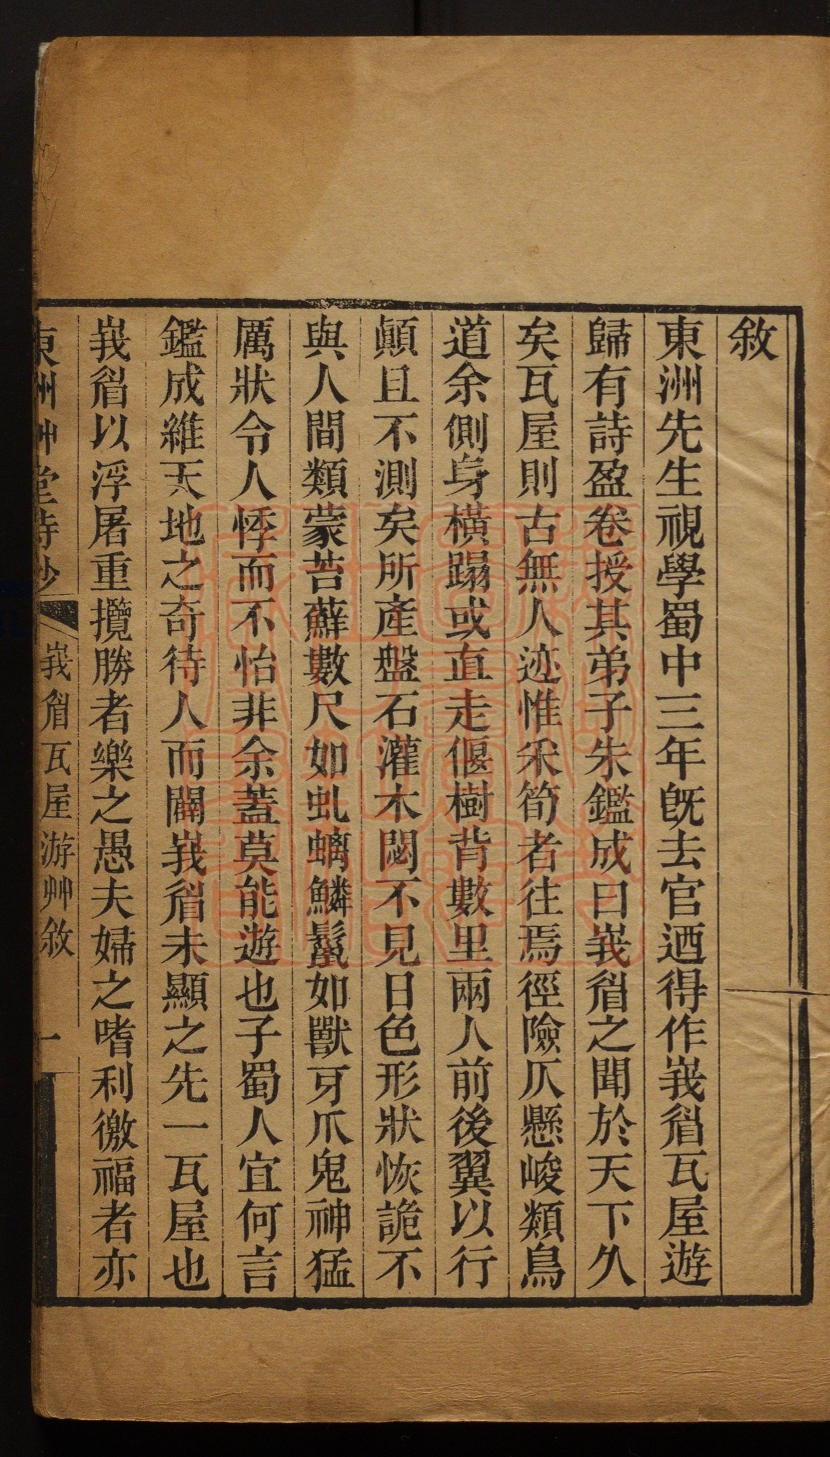 敘
東洲先生視學蜀中三年旣去官迺得作峩眉瓦屋遊
歸有詩盈卷授其弟子朱鑑成曰峩眉之聞於天下久
矣瓦屋則古無人迹惟采筍者往焉徑險仄懸峻類鳥
道余側身橫蹋或直走偃樹背數里兩人前後翼以行
顚且不測矣所產盤石灌木閟不見日色形狀恢詭不
與人間類蒙苔蘚數尺如虬螭鱗鬣如獸牙爪鬼神猛
厲狀令人悸而不怡非余蓋莫能遊也子蜀人宜何言
鑑成維天地之奇待人而闢峩眉未顯之先一瓦屋也
峩眉以浮屠重攬勝者樂之愚夫婦之嗜利徼福者亦
東洲艸堂詩鈔
峩眉瓦屋游艸敘
一